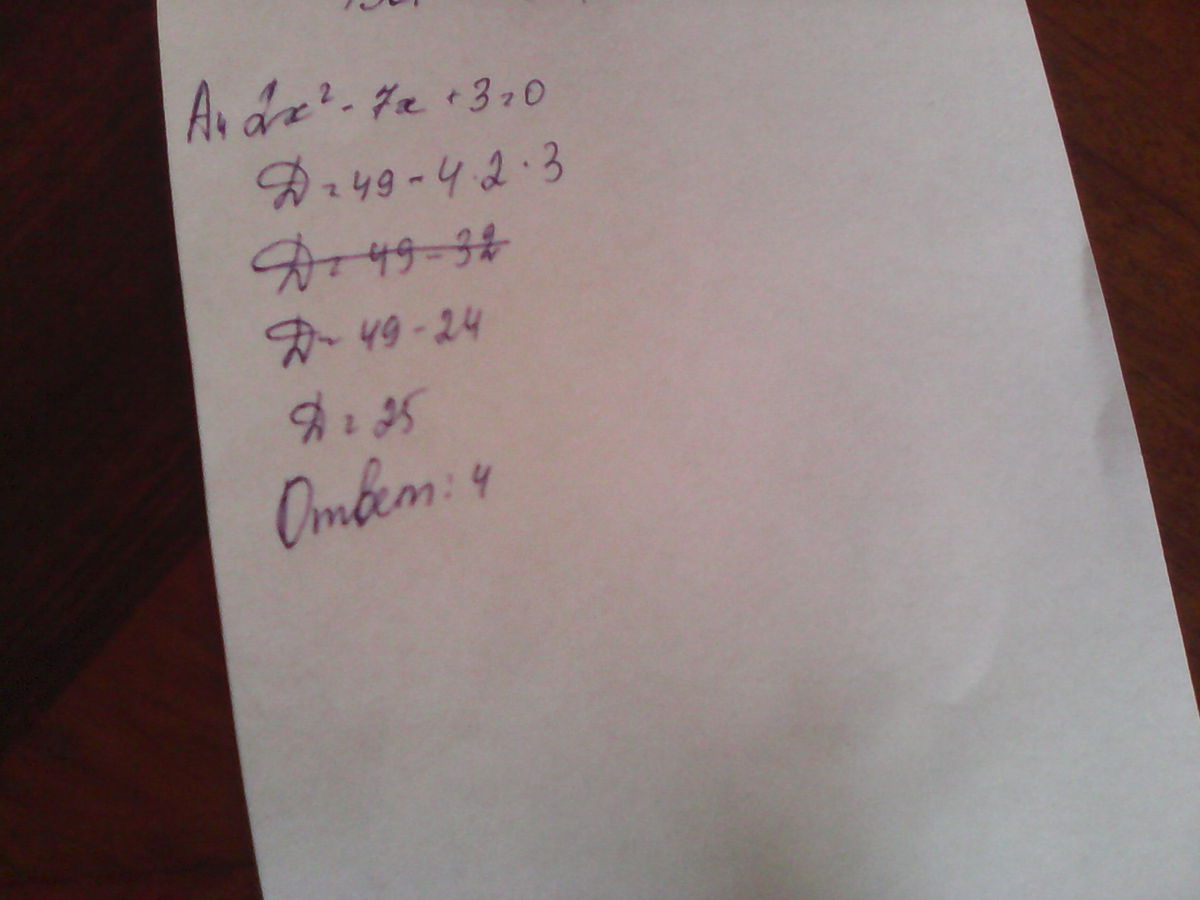 А4 2x² - 7x + 3 = 0
Д = 49 - 4 · 2 · 3
Д = 49 - 32
Д = 49 - 24
Д = 25
Ответ: 4